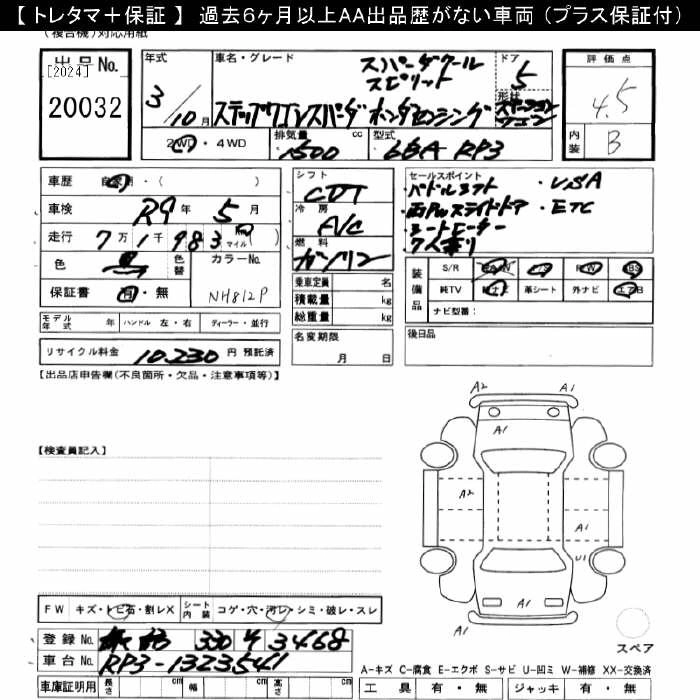 【 トレタマ＋保証 】 過去６ヶ月以上AA出品歴がない車両（プラス保証付）
(複合機)対応用紙
出品No.
[2024]
20032
年式
3/10月
車名・グレード
スパーダクール
スピリット
ステップワゴンスパーダ ホンダセンシング
ドア
5
形状
ステーション
ワゴン
評価点
4.5
内装
B
2WD・4WD
排気量
1500 cc
型式
6BA RP3
車歴 自家用・( )
車検 R9年 5月
走行 7万1千983 マイル( )
色 黒 色替 カラーNo.
NH812P
保証書 有・無
シフト
CVT
冷房
A/C
燃料
ガソリン
乗車定員 名
積載量 kg
総重量 kg
セールスポイント
・パドルシフト ・USA
・両Pwスライドドア ・ETC
・シートヒーター
・7人乗り
装備品
S/R ナビ P/S P/W ABS
純TV 純ナビ 革シート 外ナビ エアB
ナビ型番：
モデル年式 年 ハンドル 左・右 ディーラー・並行
名変期限
月 日
後日品
リサイクル料金 10,230 円 預託済
【出品店申告欄(不良箇所・欠品・注意事項等)】
【検査員記入】
A2 A1
A1
A1
A2
A1
U1
A1
スペア
FW キズ・トビ石・割レX シート内装 コゲ・穴・汚レ・シミ・破レ・スレ
登録No. 330 す 3468
車台No. RP3-1323541
車庫証明用 長さ cm 幅 cm 高さ cm
A-キズ C-腐食 E-エクボ S-サビ U-凹ミ W-補修 XX-交換済
工具 有・無 ジャッキ 有・無